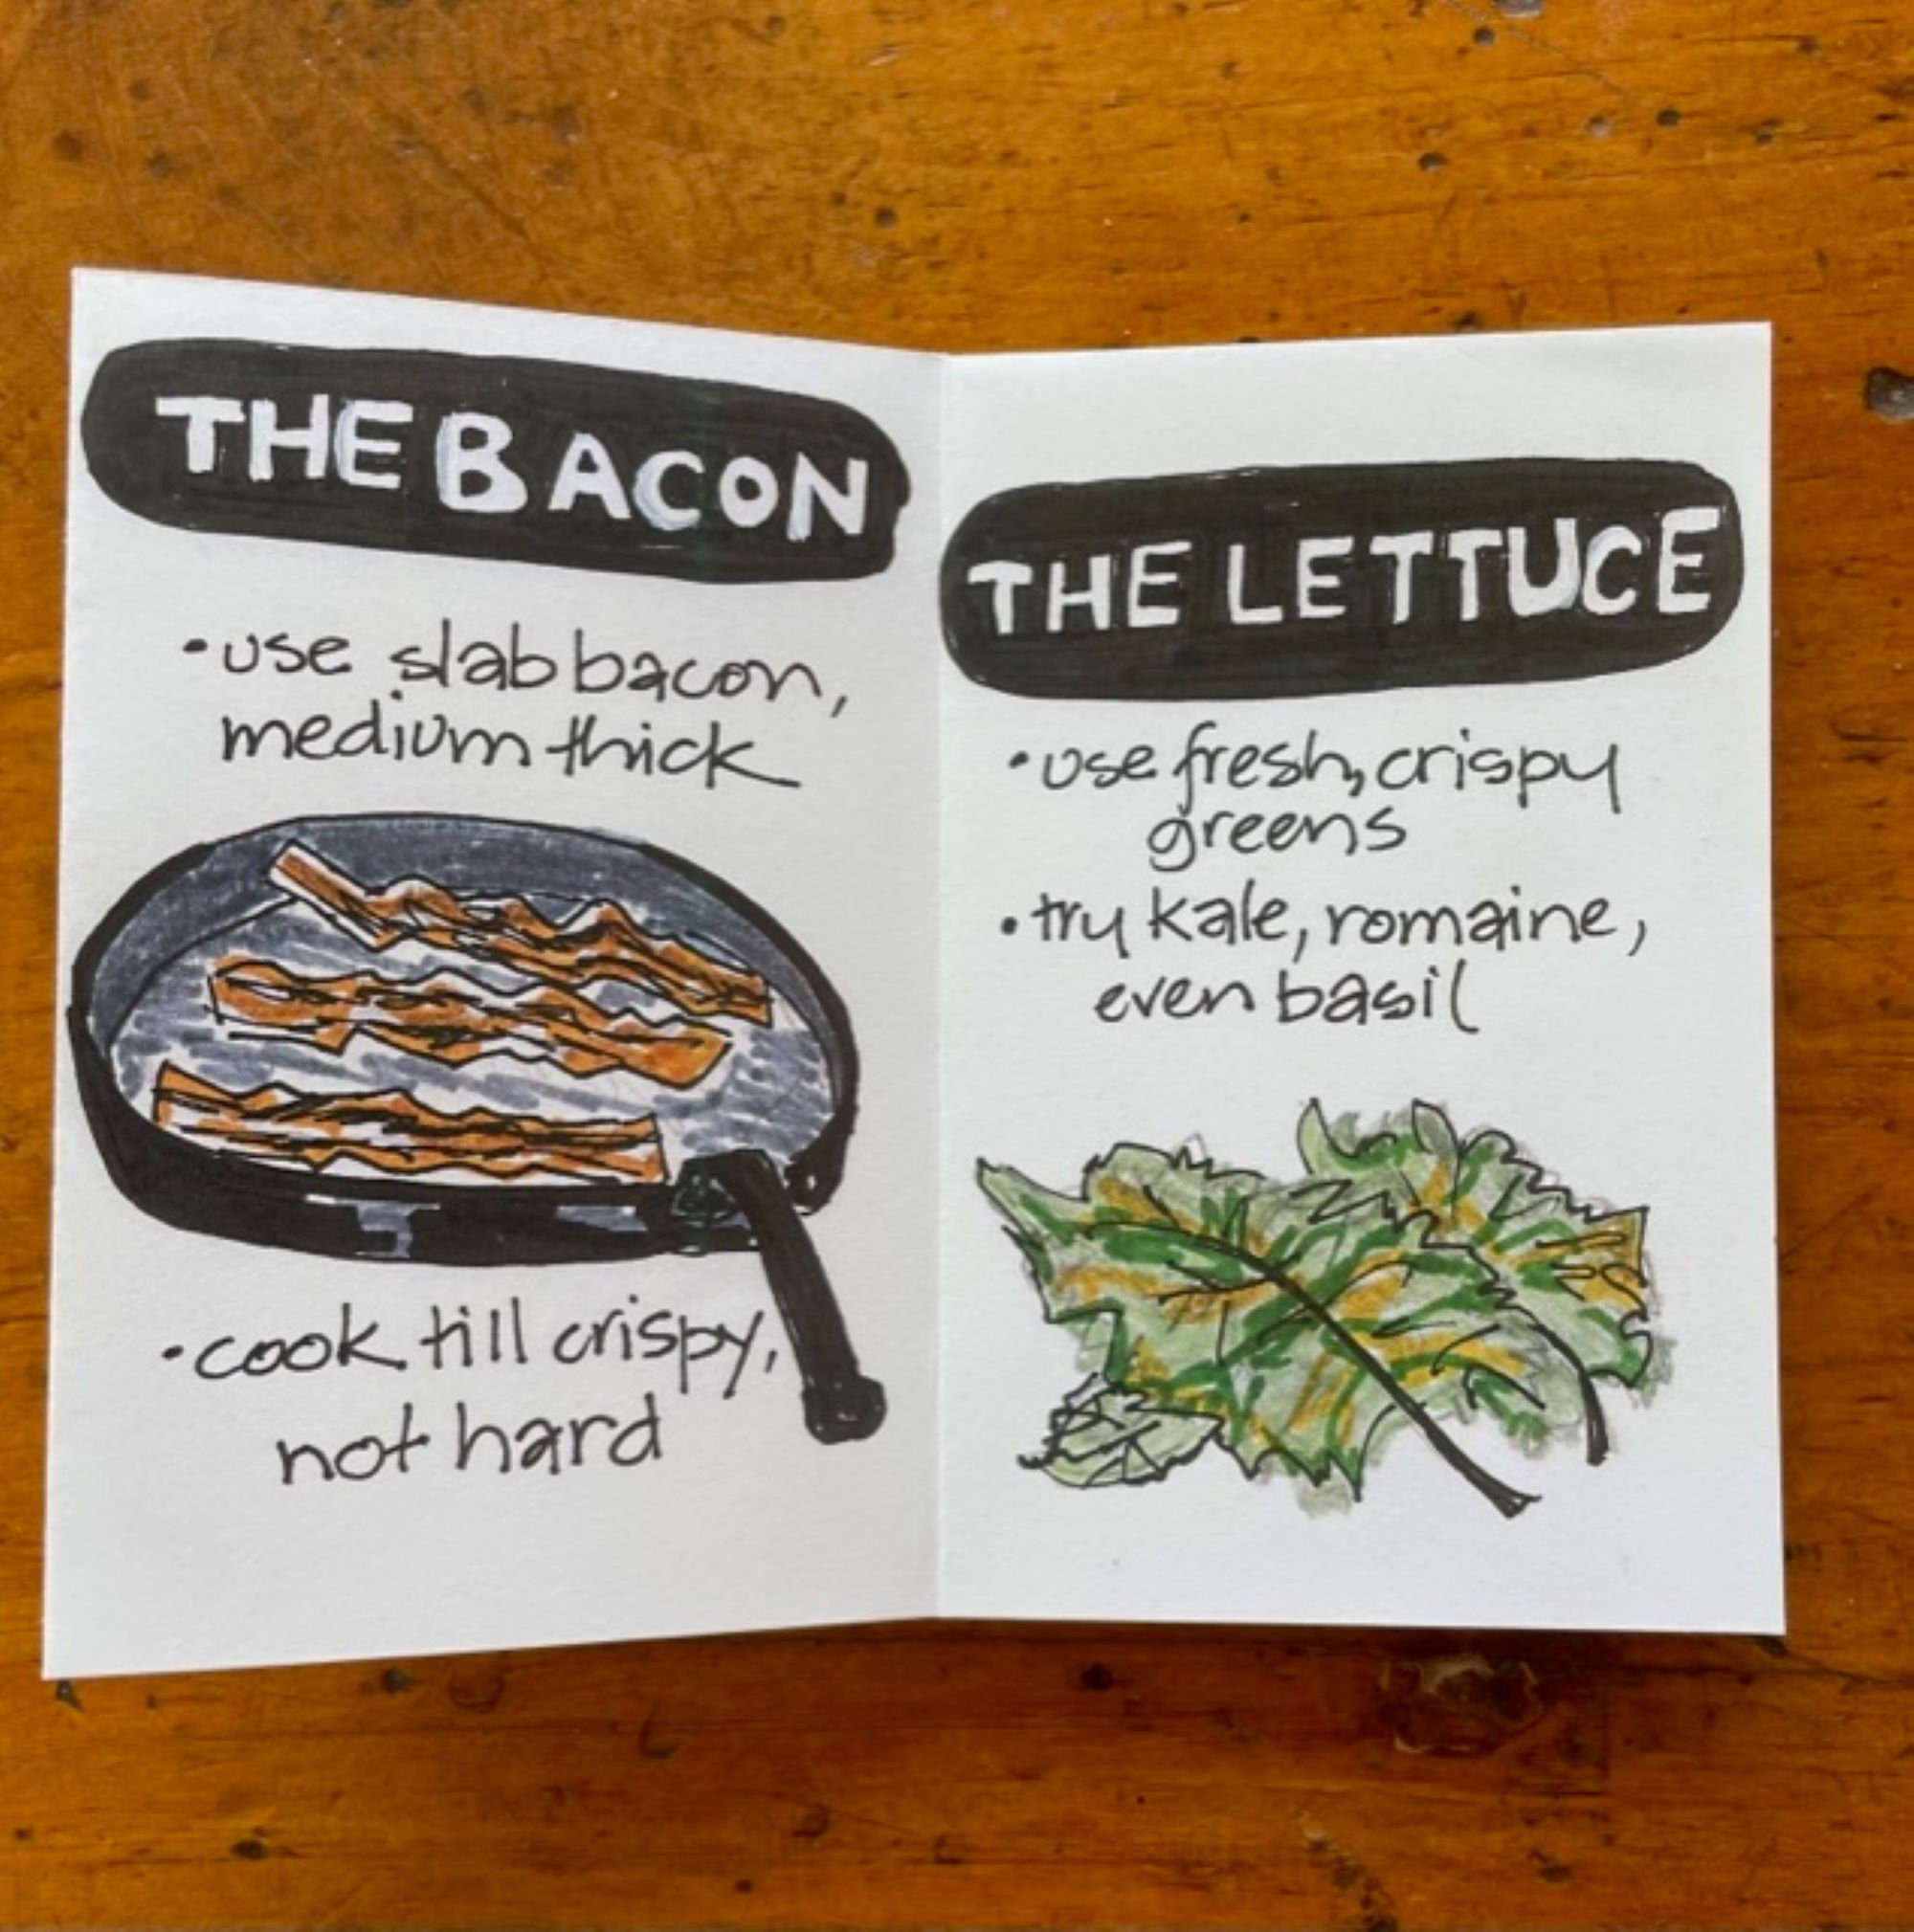 THE BACON
• use slab bacon,
medium thick
• cook till crispy,
not hard
THE LETTUCE
• use fresh, crispy
greens
• try kale, romaine,
even basil